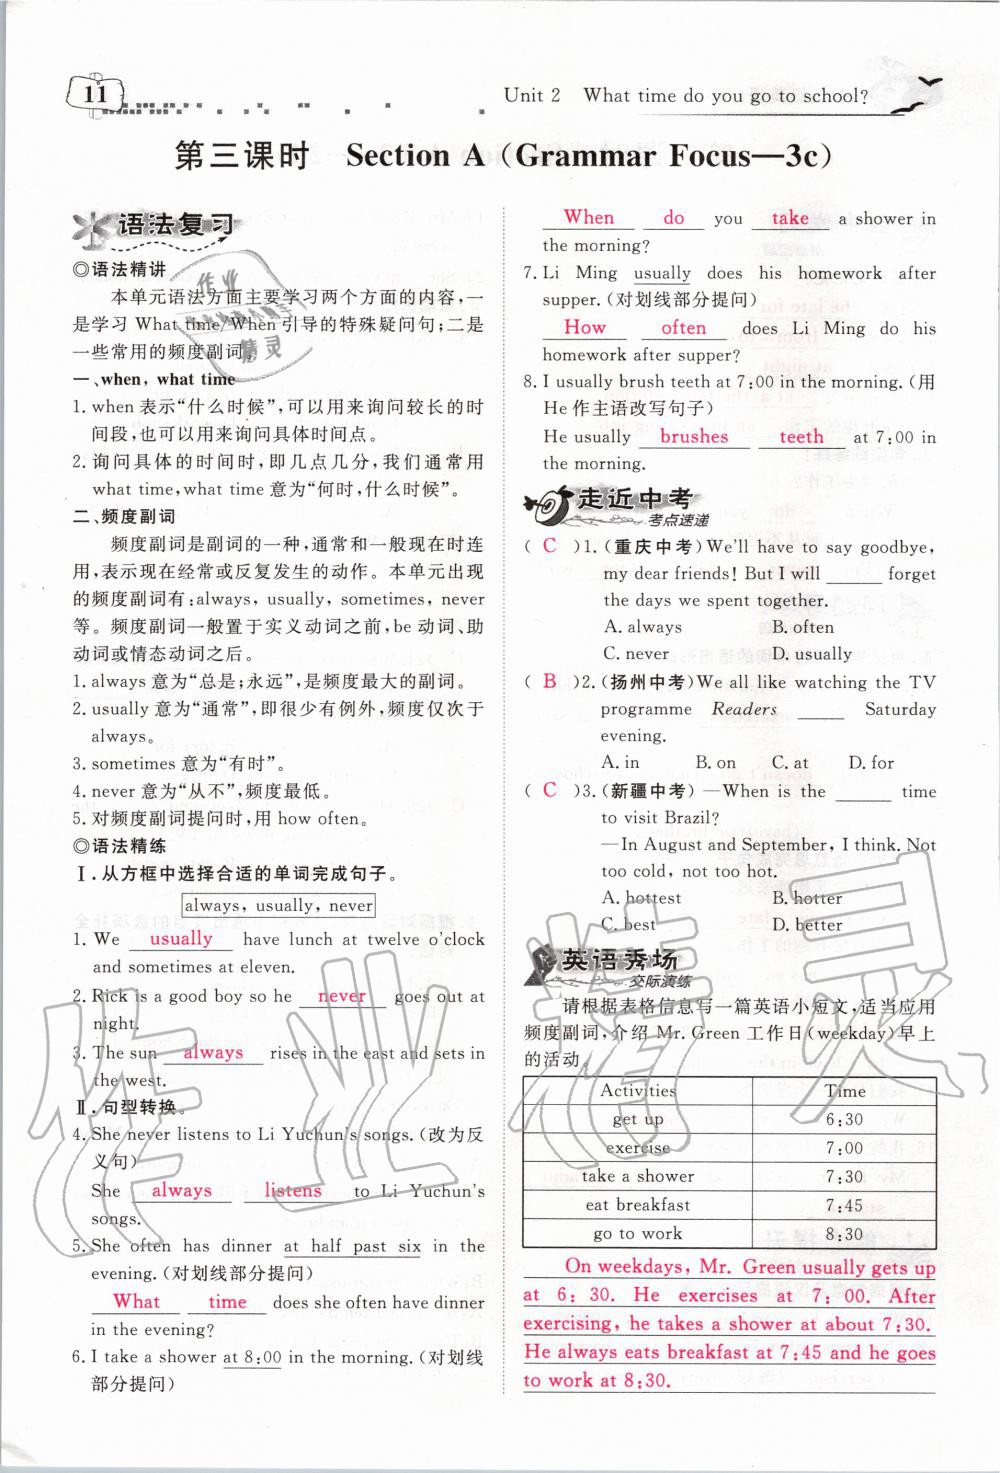 11
Unit 2 What time do you go to school?
第三课时 Section A (Grammar Focus—3c)
语法复习
◎语法精讲
本单元语法方面主要学习两个方面的内容，一
是学习 What time/When 引导的特殊疑问句；二是
一些常用的频度副词。
一、when，what time
1. when 表示“什么时候”，可以用来询问较长的时
间段，也可以用来询问具体时间点。
2. 询问具体的时间时，即几点几分，我们通常用
what time，what time 意为“何时，什么时候”。
二、频度副词
频度副词是副词的一种，通常和一般现在时连
用，表示现在经常或反复发生的动作。本单元出现
的频度副词有：always，usually，sometimes，never
等。频度副词一般置于实义动词之前，be 动词、助
动词或情态动词之后。
1. always 意为“总是；永远”，是频度最大的副词。
2. usually 意为“通常”，即很少有例外，频度仅次于
always。
3. sometimes 意为“有时”。
4. never 意为“从不”，频度最低。
5. 对频度副词提问时，用 how often。
◎语法精练
Ⅰ. 从方框中选择合适的单词完成句子。
always，usually，never
1. We usually have lunch at twelve o'clock
and sometimes at eleven.
2. Rick is a good boy so he never goes out at
night.
3. The sun always rises in the east and sets in
the west.
Ⅱ. 句型转换。
4. She never listens to Li Yuchun's songs.(改为反
义句)
She always listens to Li Yuchun's
songs.
5. She often has dinner at half past six in the
evening.(对划线部分提问)
What time does she often have dinner
in the evening?
6. I take a shower at 8:00 in the morning.(对划线
部分提问)
When do you take a shower in
the morning?
7. Li Ming usually does his homework after
supper.(对划线部分提问)
How often does Li Ming do his
homework after supper?
8. I usually brush teeth at 7:00 in the morning.(用
He 作主语改写句子)
He usually brushes teeth at 7:00 in
the morning.
走近中考
考点速递
( C )1. (重庆中考)We'll have to say goodbye,
my dear friends! But I will ______ forget
the days we spent together.
A. always B. often
C. never D. usually
( B )2. (扬州中考)We all like watching the TV
programme Readers _____ Saturday
evening.
A. in B. on C. at D. for
( C )3. (新疆中考) —When is the ______ time
to visit Brazil?
—In August and September, I think. Not
too cold, not too hot.
A. hottest B. hotter
C. best D. better
英语秀场
交际演练
请根据表格信息写一篇英语小短文，适当应用
频度副词，介绍 Mr. Green 工作日(weekday)早上
的活动。
Activities Time
get up 6:30
exercise 7:00
take a shower 7:30
eat breakfast 7:45
go to work 8:30
On weekdays, Mr. Green usually gets up
at 6:30. He exercises at 7:00. After
exercising, he takes a shower at about 7:30.
He always eats breakfast at 7:45 and he goes
to work at 8:30.
作业精灵